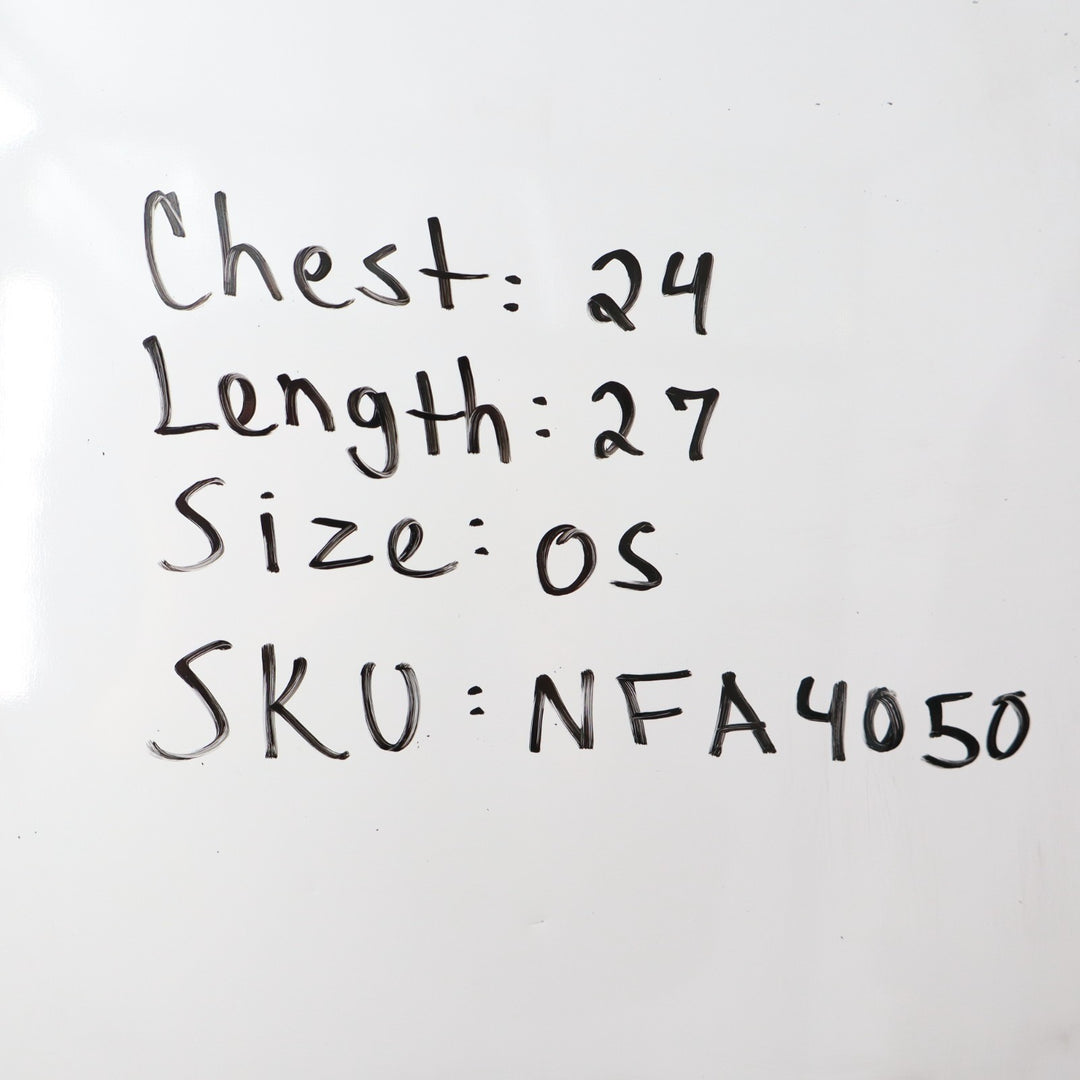 Chest: 24
Length: 27
Size: OS
SKU: NFA4050